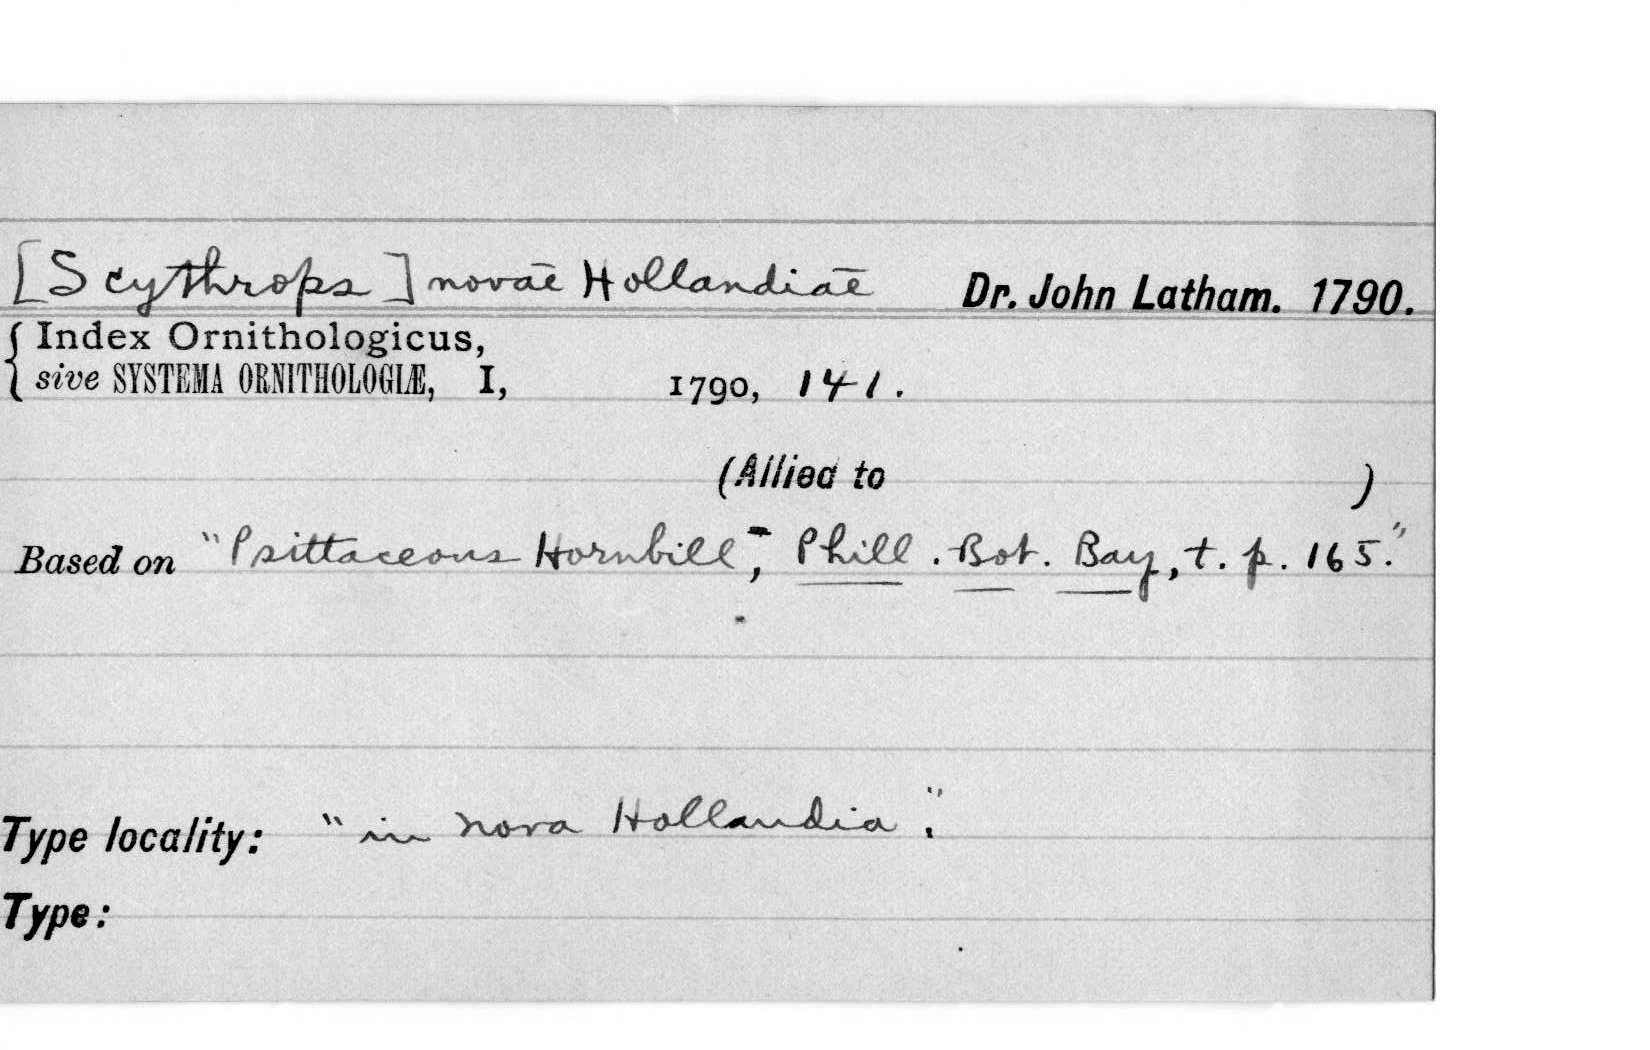 [Scythrops] novae Hollandiae Dr. John Latham. 1790.
{ Index Ornithologicus,
sive SYSTEMA ORNITHOLOGIÆ, I, 1790, 141.
(Allied to )
Based on "Psittaceous Hornbill", Phill. Bot. Bay, t. p. 165."
Type locality: "in nova Hollandia".
Type: